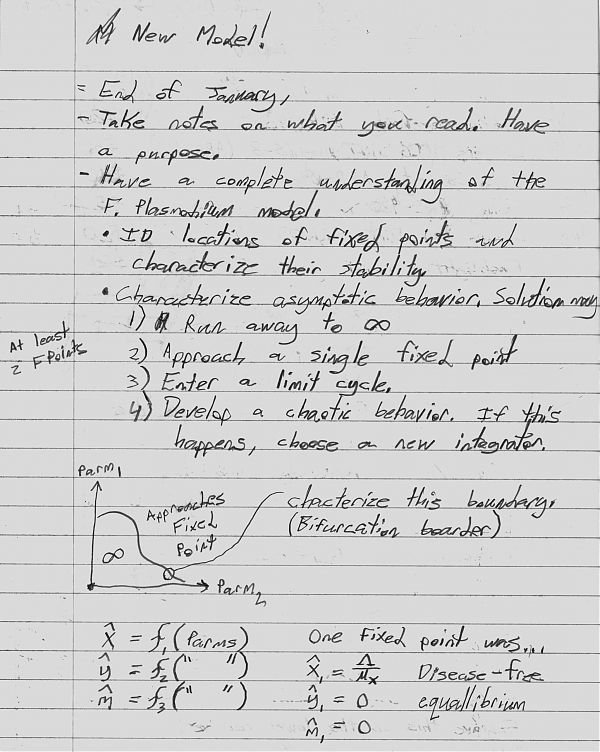 New Model!
- End of January,
- Take notes on what you read. Have
a purpose.
- Have a complete understanding of the
F. Plasmodium model.
• ID locations of fixed points and
characterize their stability.
• Characterize asymptotic behavior. Solution may
1) Run away to ∞
At least
2 F Points
2) Approach a single fixed point
3) Enter a limit cycle.
4) Develop a chaotic behavior. If this
happens, choose a new integrator.
Parm₁
Approaches
Fixed
Point
∞
Parm₂
chacterize this boundary.
(Bifurcation boarder)
x̂ = f₁(Parms)
ŷ = f₂(" ")
m̂ = f₃(" ")
One fixed point was...
x̂₁ = Λ/μₓ Disease-free
ŷ₁ = 0 equallibrium
m̂₁ = 0